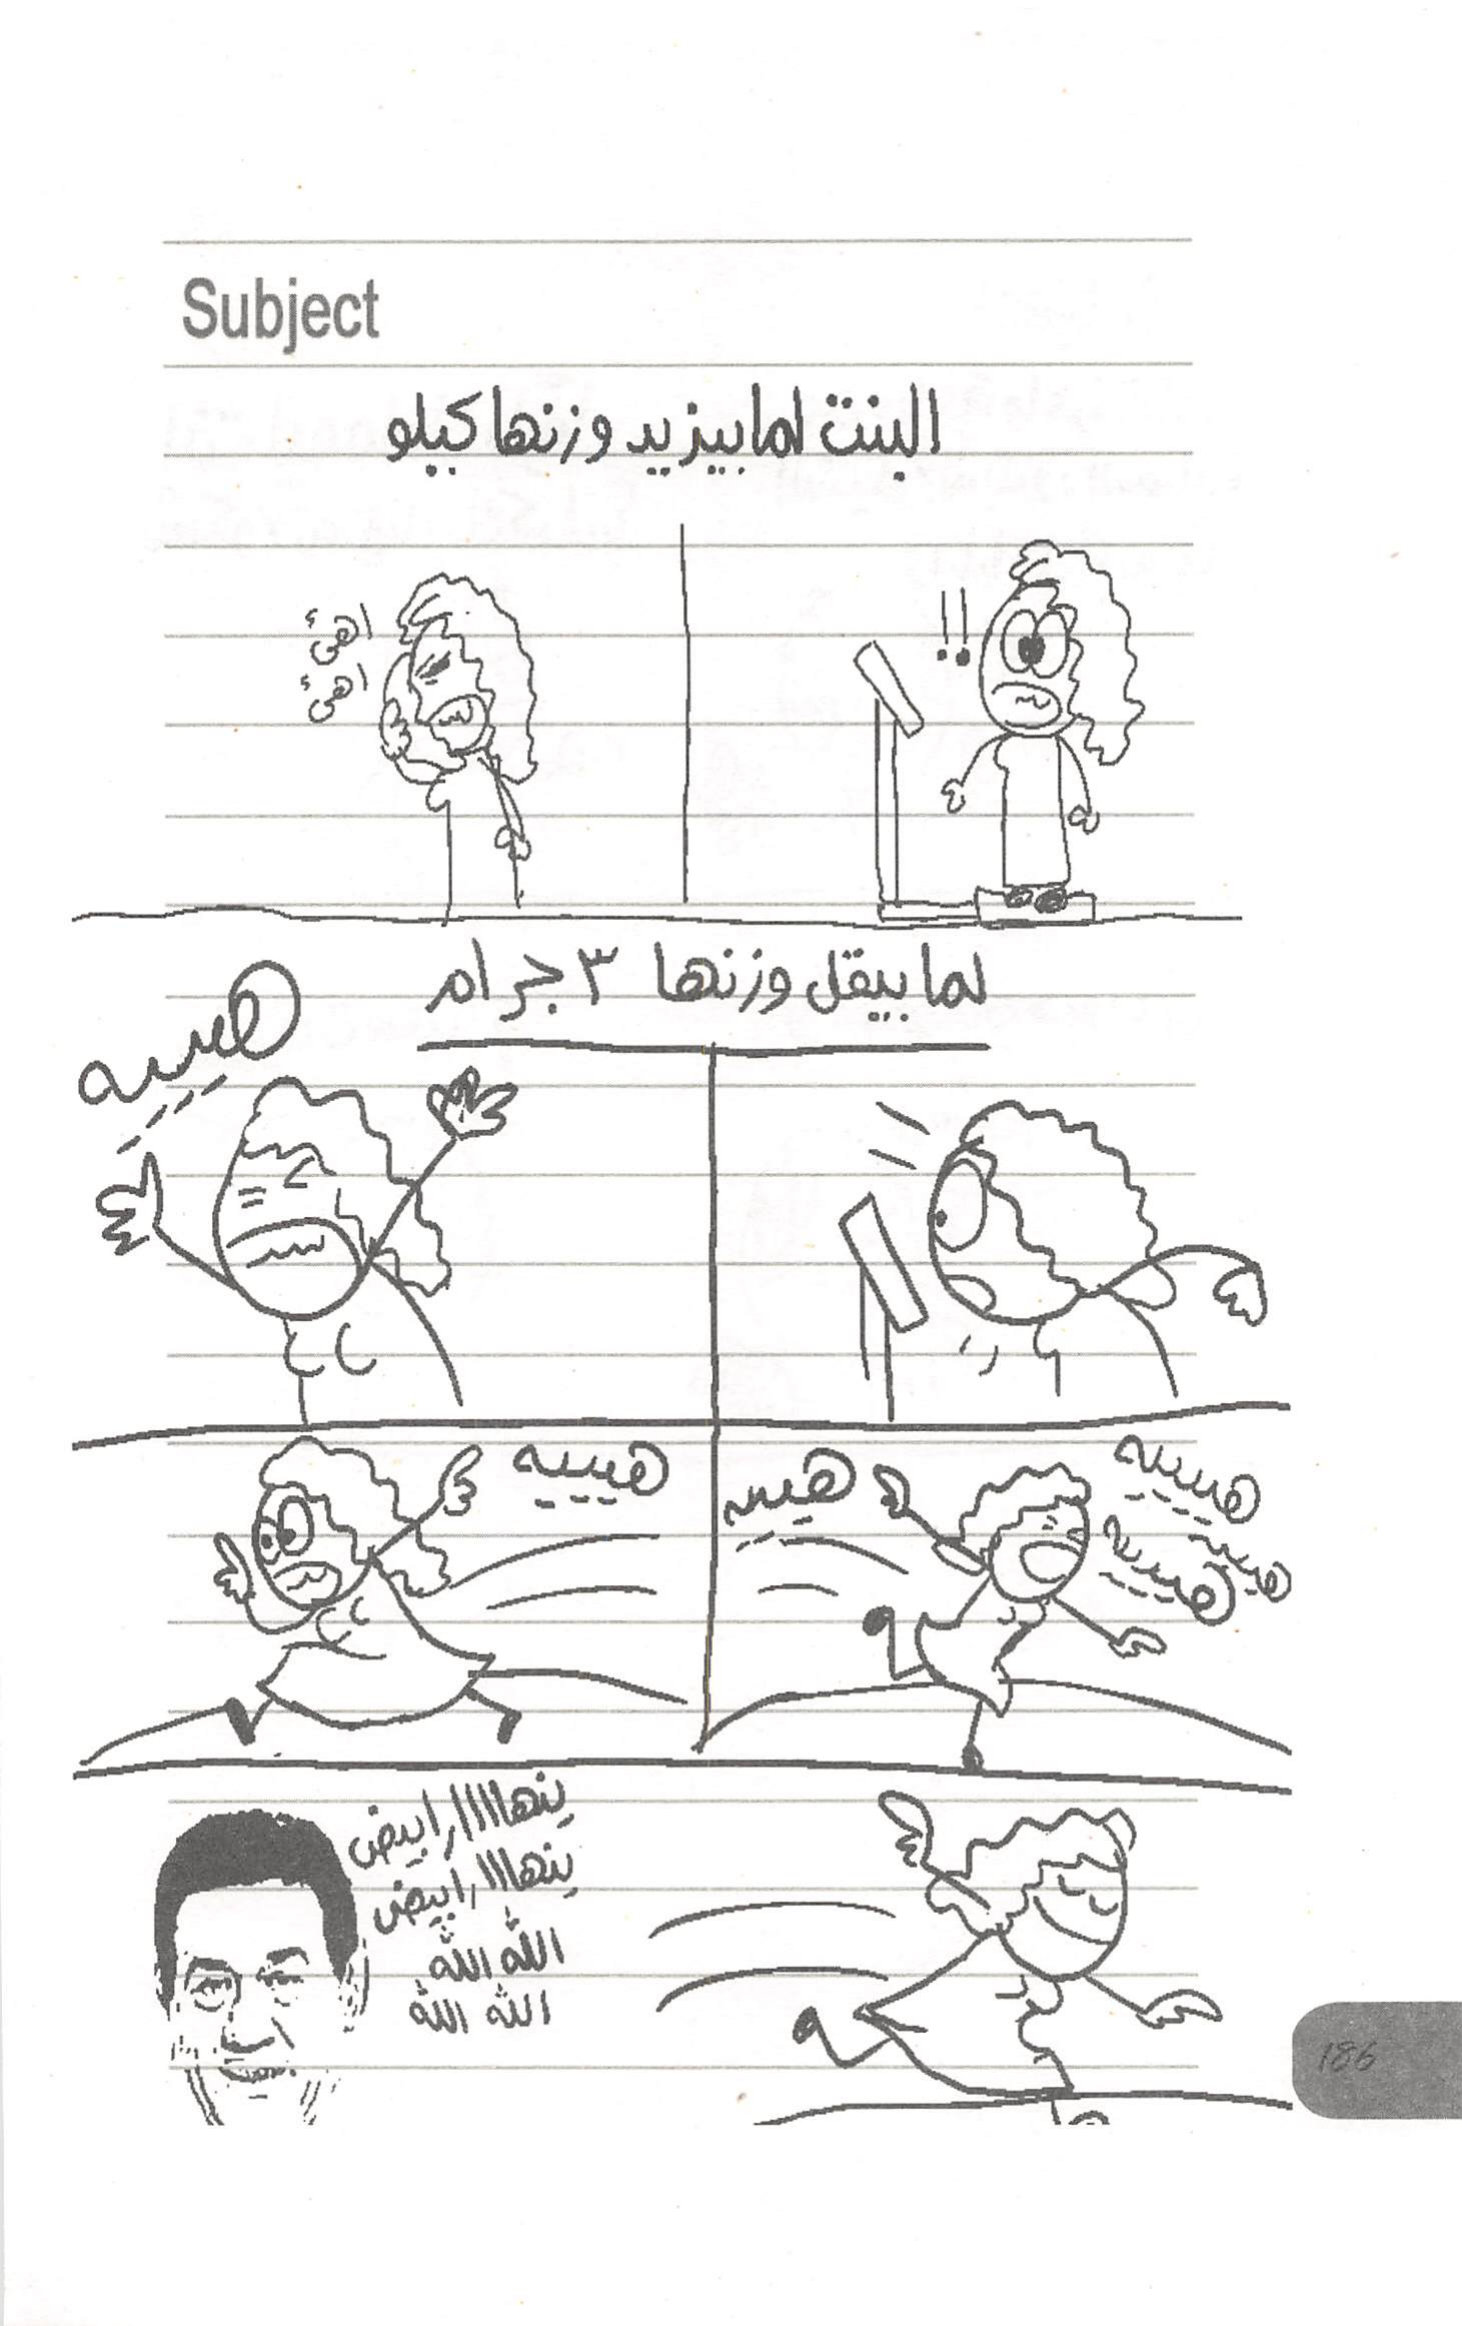 Subject
البنت لما بيزيد وزنها كيلو
!!
اهئ
اهئ
لما بيقل وزنها ٣ جرام
هيييه
هيييه
هيييه
هيييه
هيييه
هيييه
ينهااااار ابيض
ينهاااار ابيض
الله الله
الله الله
186